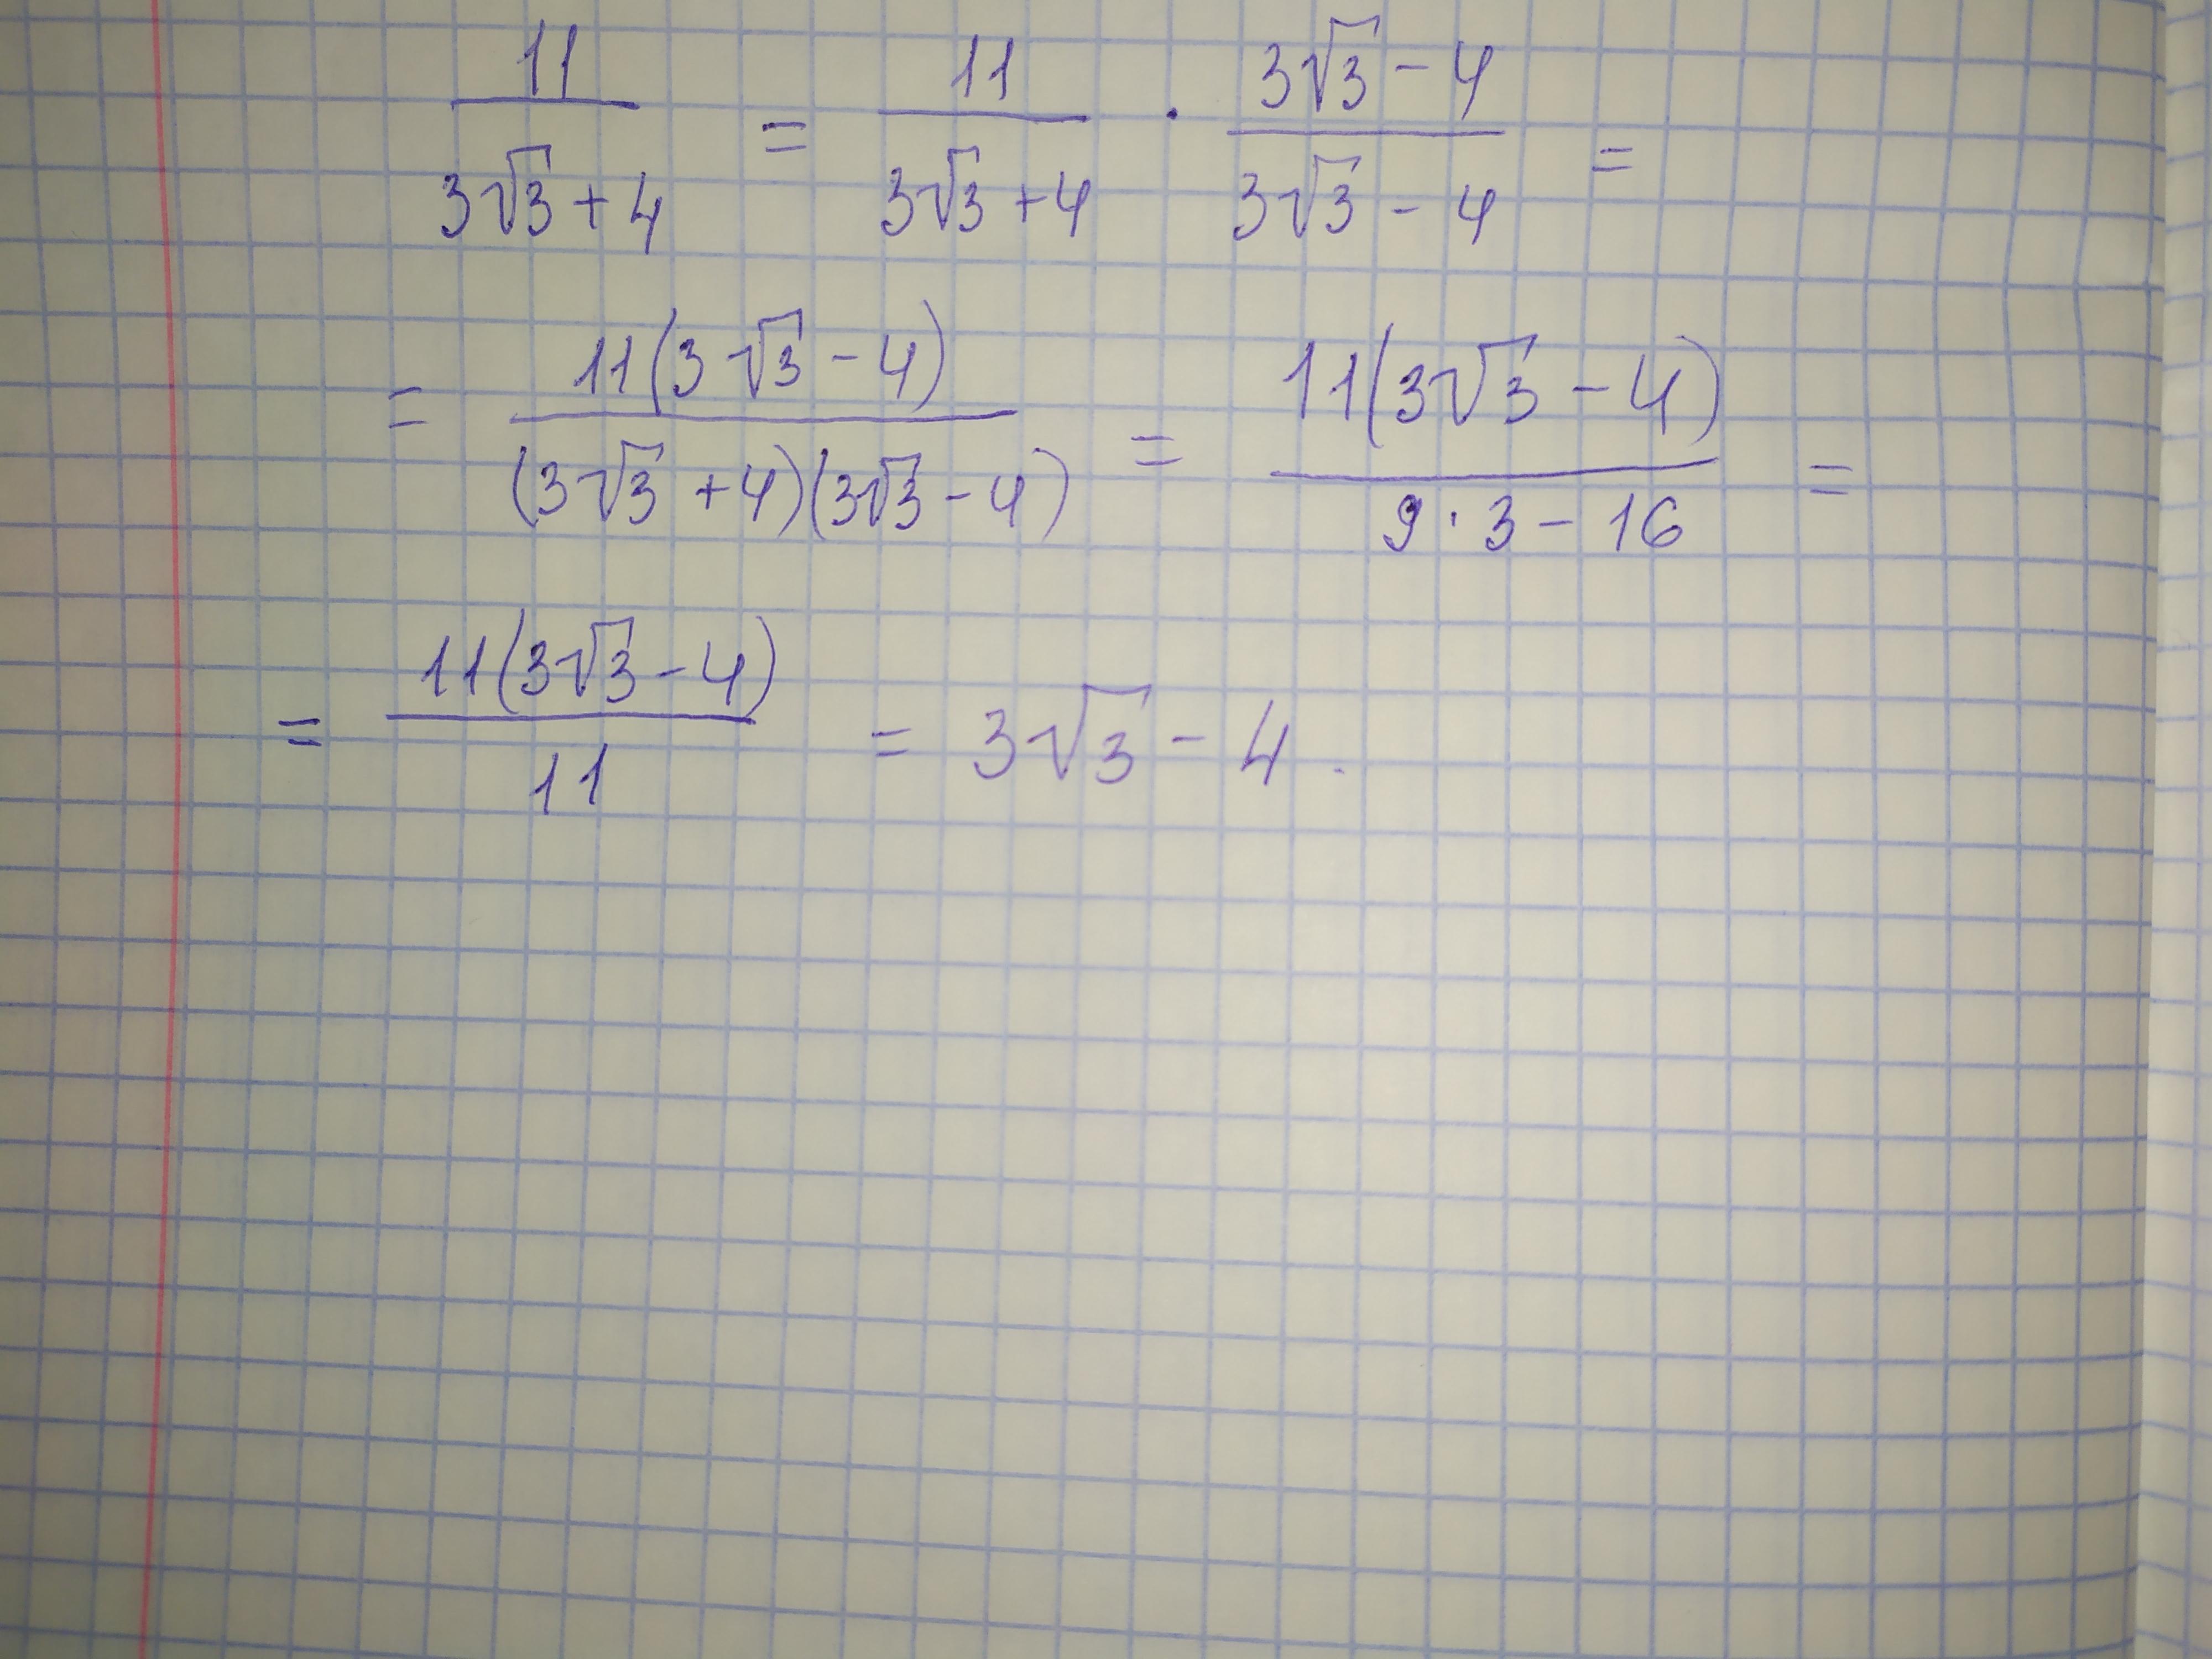 11/(3√3+4) = 11/(3√3+4) · (3√3-4)/(3√3-4) =
= 11(3√3-4)/((3√3+4)(3√3-4)) = 11(3√3-4)/(9·3-16) =
= 11(3√3-4)/11 = 3√3-4.